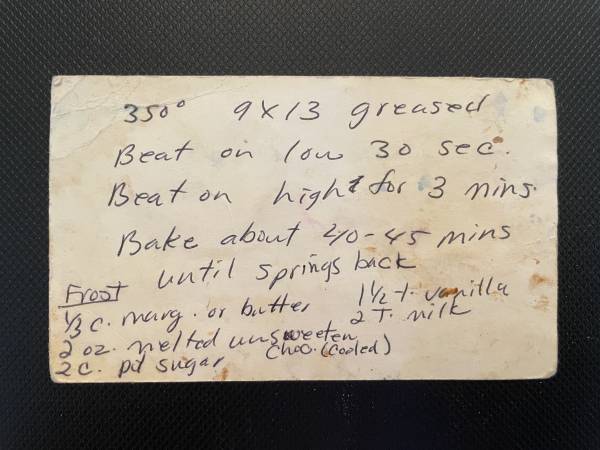 350° 9X13 greased
Beat on low 30 sec.
Beat on high for 3 mins.
Bake about 40-45 mins
until springs back
Frost
1/3 c. marg. or butter
2 oz. melted unsweeten
choc. (cooled)
2 c. pd sugar
1 1/2 t. vanilla
2 T. milk